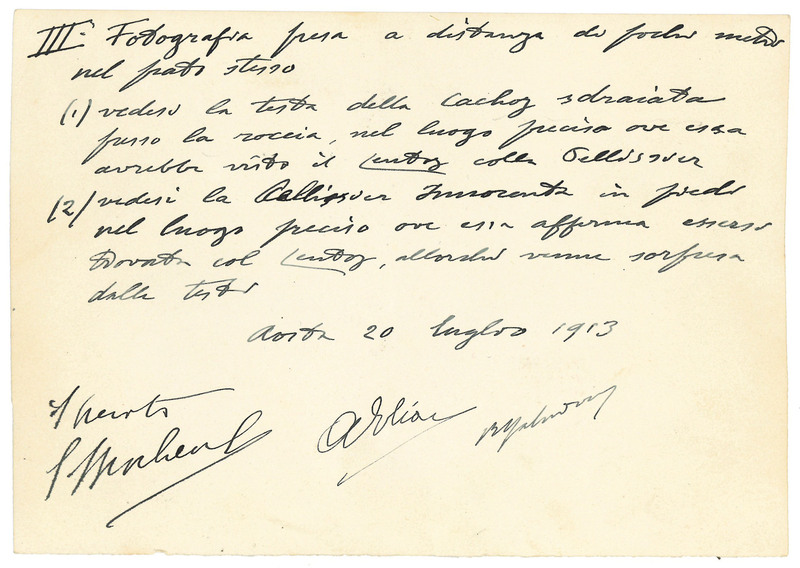 III.a Fotografia presa a distanza di pochi metri
nel prato stesso
(1) vedesi la testa della Cachoz sdraiata
presso la roccia, nel luogo preciso ove essa
avrebbe visto il colla Pellissier
(2) vedesi la Pellissier Innocenta in piedi
nel luogo preciso ove essa afferma essersi
trovata col, allorchè venne sorpresa
dalla teste
Aosta 20 luglio 1913
Il perito